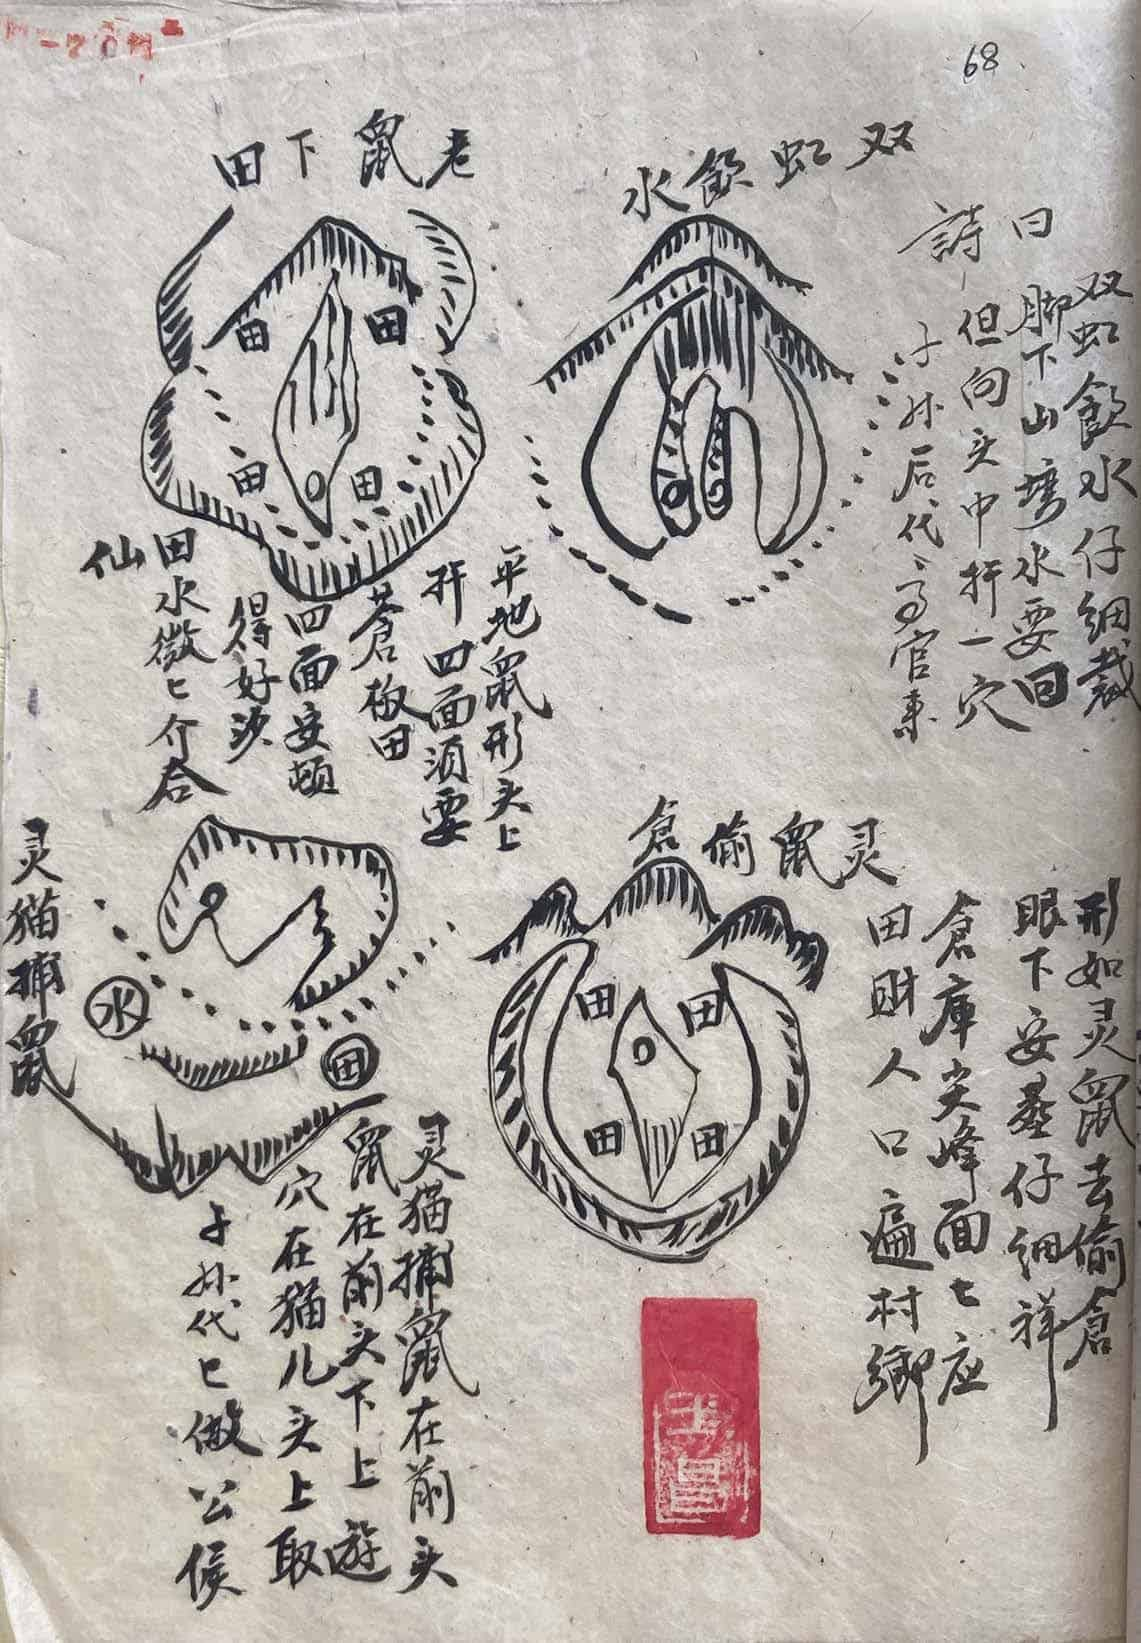 68
双虹飲水
詩曰
双虹飲水仔細裁
脚下山湾水要回
但向头中扦一穴
子孙后代〻官来
老鼠下田
田
田
田
田
平地鼠形头上
扦四面须要
蒼板田
四面安頓
得好
田水微〻介合
仙
灵鼠偷倉
田
田
田
田
形如灵鼠去偷倉
眼下安基仔細祥
倉庫尖峰面七应
田財人口遍村鄉
灵猫捕鼠
水
田
灵猫捕鼠在前头
鼠在前头下上遊
穴在猫儿头上取
子孙代匕做公侯